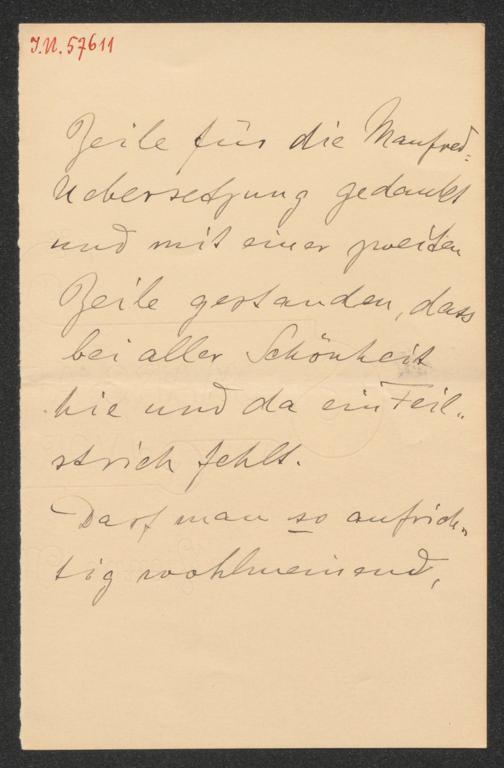 J.N. 57611
Zeile für die Manfred-
Uebersetzung gedankt
und mit einer zweiten
Zeile gestanden, dass
bei aller Schönheit
hie und da ein Feil-
strich fehlt.
Darf man so aufrich-
tig wohlmeinend,